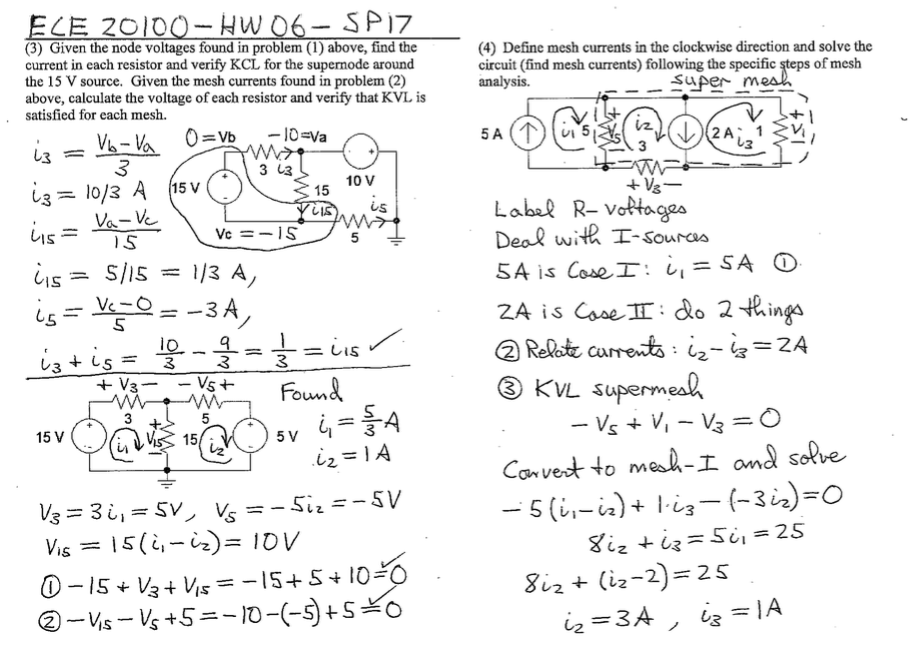 ECE 20100 - HW 06 - SP17
(3) Given the node voltages found in problem (1) above, find the
current in each resistor and verify KCL for the supernode around
the 15 V source. Given the mesh currents found in problem (2)
above, calculate the voltage of each resistor and verify that KVL is
satisfied for each mesh.
i3 = (Vb - Va)/3
0 = Vb
-10 = Va
3 i3
15 V
15
i15
10 V
i5
5
Vc = -15
i3 = 10/3 A
i15 = (Va - Vc)/15
i15 = 5/15 = 1/3 A,
i5 = (Vc - 0)/5 = -3 A,
i3 + i5 = 10/3 - 9/3 = 1/3 = i15 ✓
+ V3 -
- V5 +
3
5
15 V
i1
+ V15 -
15
i2
5 V
Found
i1 = 5/3 A
i2 = 1 A
V3 = 3 i1 = 5V, V5 = -5i2 = -5V
V15 = 15(i1 - i2) = 10V
① -15 + V3 + V15 = -15 + 5 + 10 = 0 ✓
② -V15 - V5 + 5 = -10 - (-5) + 5 = 0 ✓
(4) Define mesh currents in the clockwise direction and solve the
circuit (find mesh currents) following the specific steps of mesh
analysis.
super mesh
5 A
i1
5
+ V5 -
i2
3
2 A
i3
1
+ V1 -
+ V3 -
Label R-voltages
Deal with I-sources
5A is Case I: i1 = 5A ①
2A is Case II: do 2 things
② Relate currents: i2 - i3 = 2A
③ KVL supermesh
- V5 + V1 - V3 = 0
Convert to mesh-I and solve
-5(i1-i2) + 1·i3 - (-3i2) = 0
8i2 + i3 = 5i1 = 25
8i2 + (i2-2) = 25
i2 = 3A, i3 = 1A